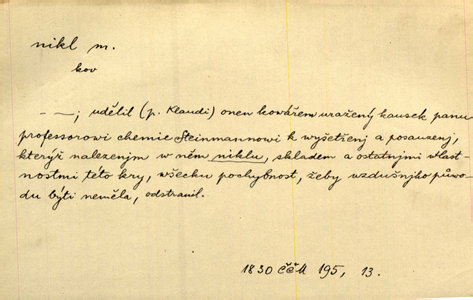 nikl m.
kov
— —; udělil (p. Klaudi) onen kowářem uražený kausek panu
professorowi chemie Steinmannowi k wyšetřenj a posauzenj,
kterýž nalezenjm w něm niklu, skladem a ostatnjmi wlast-
nostmi této kry, wšecku pochybnost, žeby wzdušnjho půwo-
du býti neměla, odstranil.
1830 ČČM 195, 13.